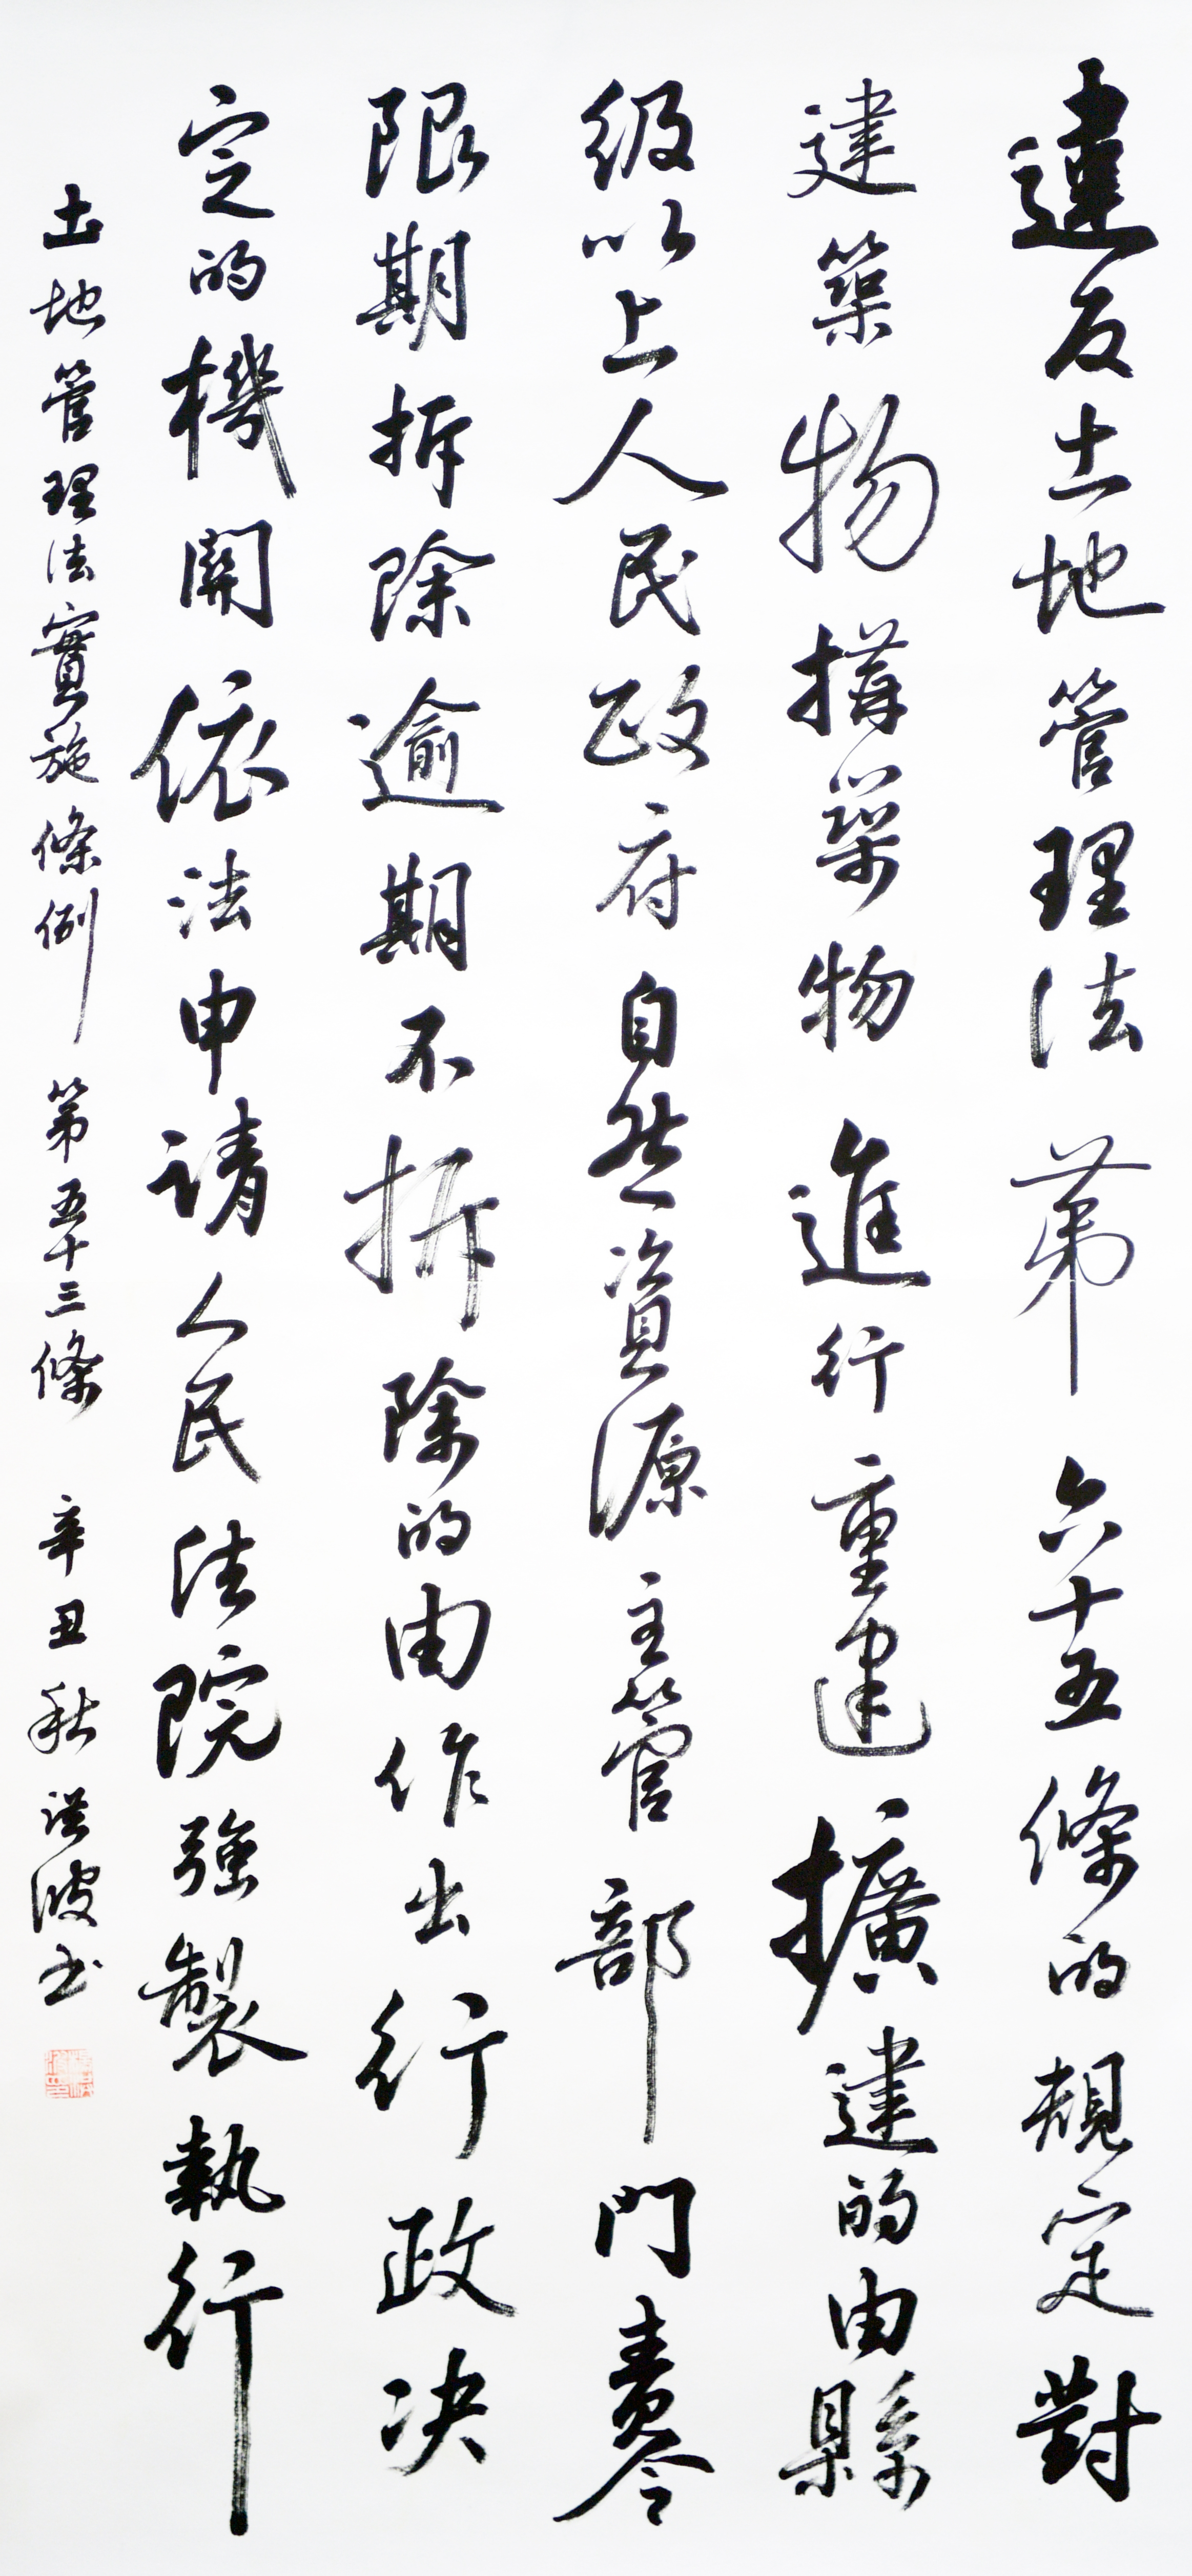 違反土地管理法第六十五條的規定對
建築物構築物進行重建擴建的由縣
級以上人民政府自然資源主管部門責令
限期拆除逾期不拆除的由作出行政决
定的機關依法申請人民法院強製執行
土地管理法實施條例第五十三條辛丑秋洪波书